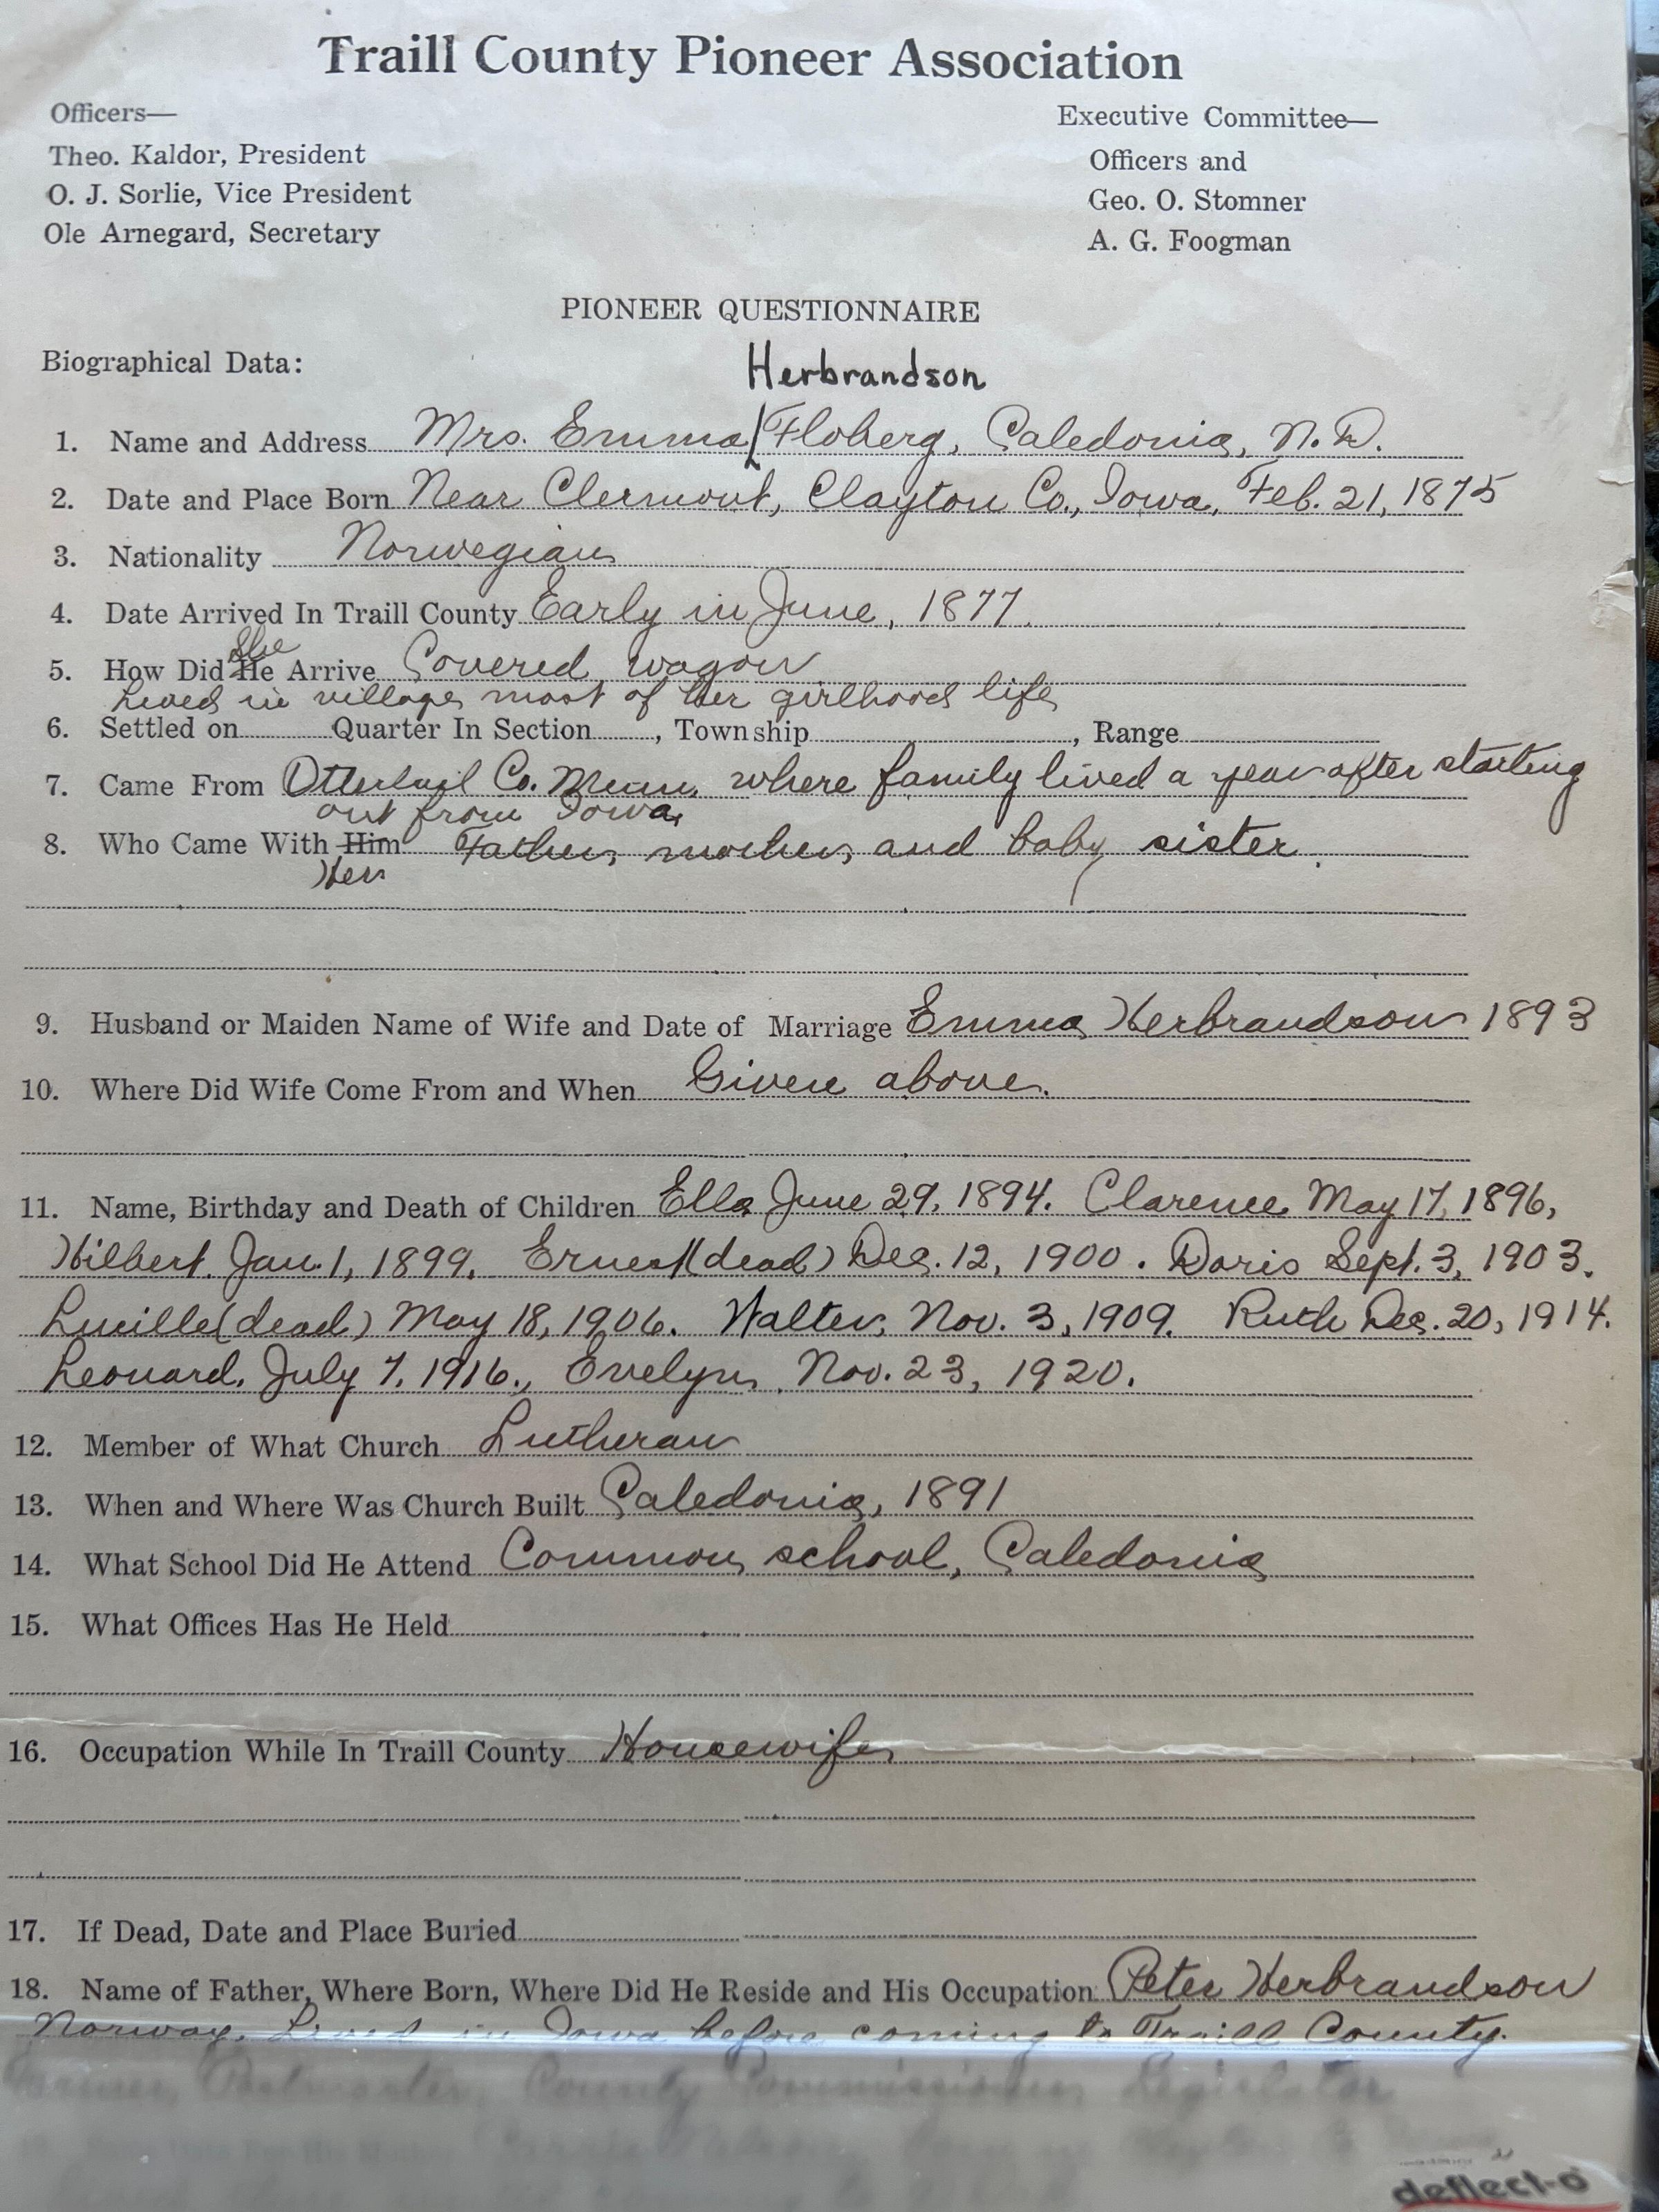 Traill County Pioneer Association
Officers—
Theo. Kaldor, President
O. J. Sorlie, Vice President
Ole Arnegard, Secretary
Executive Committee—
Officers and
Geo. O. Stomner
A. G. Foogman
PIONEER QUESTIONNAIRE
Biographical Data:
Herbrandson
1. Name and Address Mrs. Emma Floberg, Caledonia, N. D.
2. Date and Place Born Near Clermont, Clayton Co., Iowa, Feb. 21, 1875
3. Nationality Norwegian
4. Date Arrived In Traill County Early in June, 1877.
She
5. How Did He Arrive Covered wagon
Lived in village most of her girlhood life
6. Settled on Quarter In Section , Township , Range
7. Came From Ottertail Co. Minn. where family lived a year after starting
out from Iowa.
8. Who Came With Him Father, mother, and baby sister.
Her
9. Husband or Maiden Name of Wife and Date of Marriage Emma Herbrandson 1893
10. Where Did Wife Come From and When Given above.
11. Name, Birthday and Death of Children Ella June 29, 1894. Clarence May 17, 1896,
Hilbert. Jan. 1, 1899. Ernest (dead) Dec. 12, 1900. Doris Sept. 3, 1903.
Lucille (dead) May 18, 1906. Walter, Nov. 3, 1909. Ruth Dec. 20, 1914.
Leonard. July 7, 1916., Evelyn, Nov. 23, 1920.
12. Member of What Church Lutheran
13. When and Where Was Church Built Caledonia, 1891
14. What School Did He Attend Common school, Caledonia
15. What Offices Has He Held
16. Occupation While In Traill County Housewife
17. If Dead, Date and Place Buried
18. Name of Father, Where Born, Where Did He Reside and His Occupation Peter Herbrandson
Norway. Lived in Iowa before coming to Traill County.
Farmer, Postmaster, County Commissioner, Legislator
deflect-o